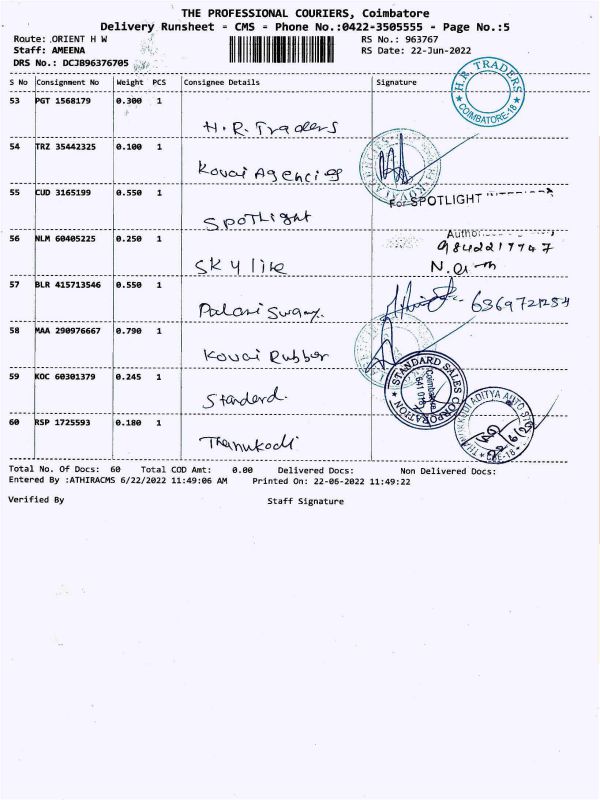 THE PROFESSIONAL COURIERS, Coimbatore
Delivery Runsheet - CMS - Phone No.:0422-3505555 - Page No.:5
Route: .ORIENT H W RS No.: 963767
Staff: AMEENA RS Date: 22-Jun-2022
DRS No.: DCJ896376705
S No Consignment No Weight PCS Consignee Details Signature
53 PGT 1568179 0.300 1
H.R. Traders
H.R. TRADERS COIMBATORE-18
54 TRZ 35442325 0.100 1
Kovai Agencies
55 CUD 3165199 0.550 1
Spotlight
For SPOTLIGHT
56 NLM 60405225 0.250 1
9842217747
Skyline
57 BLR 415713546 0.550 1
6369721254
Palani Swamy.
58 MAA 290976667 0.790 1
Kovai Rubber
59 KOC 60301379 0.245 1
STANDARD SALES CORPORATION Coimbatore
Standard.
60 RSP 1725593 0.180 1
Thanukodi
Total No. Of Docs: 60 Total COD Amt: 0.00 Delivered Docs: Non Delivered Docs:
Entered By :ATHIRACMS 6/22/2022 11:49:06 AM Printed On: 22-06-2022 11:49:22
Verified By Staff Signature